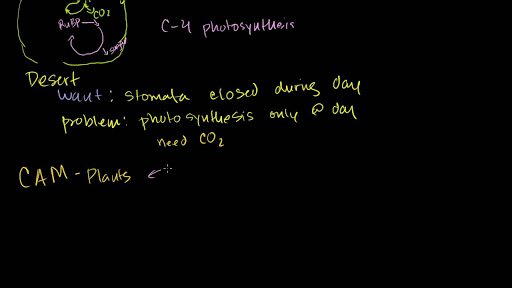 CO2
RuBP
C-4 photosynthesis
Desert
want: stomata closed during day
problem: photosynthesis only @ day
need CO2
CAM - Plants